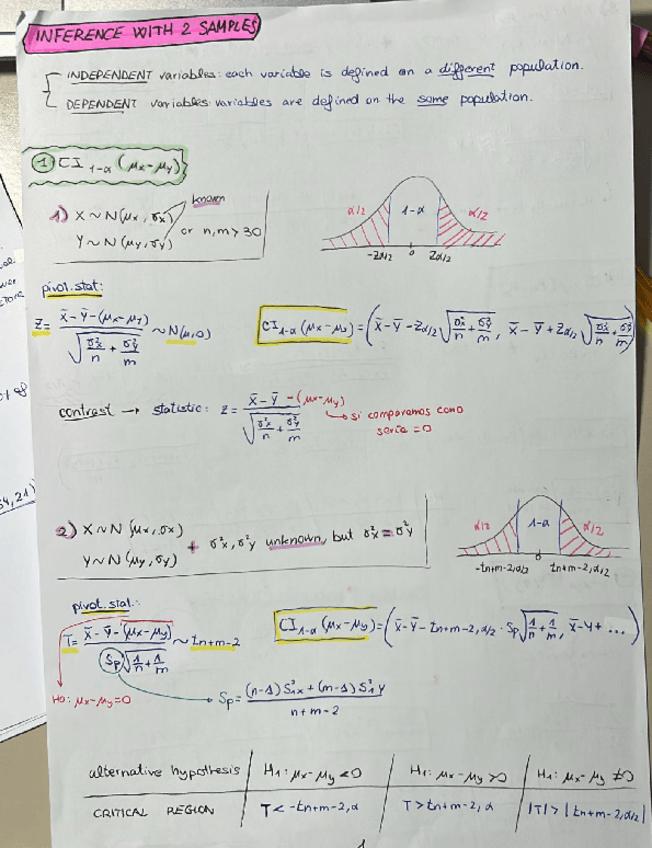 INFERENCE WITH 2 SAMPLES
INDEPENDENT variables: each variable is defined on a different population.
DEPENDENT variables: variables are defined on the same population.
① CI 1-α (μx-μy)
1) X ~ N(μx, σx) known
Y ~ N(μy, σy) or n,m > 30
α/2 1-α α/2
-Zα/2 0 Zα/2
pivot.stat:
Z = x̄ - ȳ - (μx-μy) / √(σ²x/n + σ²y/m) ~ N(μ,0)
CI 1-α (μx-μy) = (x̄-ȳ - Zα/2 √(σ²x/n + σ²y/m), x̄ - ȳ + Zα/2 √(σ²x/n + σ²y/m))
contrast → statistic: Z = x̄ - ȳ - (μx-μy) / √(σ²x/n + σ²y/m)
→ si comparamos cono
seria = 0
2) X ~ N (μx, σx)
Y ~ N (μy, σy) + σ²x, σ²y unknown, but σ²x = σ²y
α/2 1-α α/2
-tn+m-2,α/2 0 tn+m-2,α/2
pivot.stat.:
T = x̄ - ȳ - (μx-μy) / Sp √(1/n + 1/m) ~ tn+m-2
CI 1-α (μx-μy) = (x̄-ȳ - tn+m-2,α/2 · Sp √(1/n + 1/m), x̄-y+ ...)
H0: μx-μy=0
→ Sp = (n-1) S²1x + (m-1) S²1y / n+m-2
alternative hypothesis H1: μx-μy <0 H1: μx-μy >0 H1: μx-μy ≠0
CRITICAL REGION T < -tn+m-2,α T > tn+m-2,α |T| > |tn+m-2,α/2|